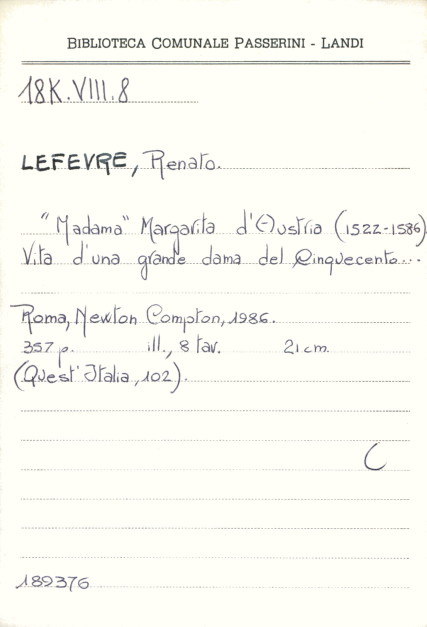 BIBLIOTECA COMUNALE PASSERINI - LANDI
18K.VIII.8
LEFEVRE, Renato.
"Madama" Margarita d'Austria (1522-1586)
Vita d'una grande dama del Cinquecento...
Roma, Newton Compton, 1986.
357 p. ill., 8 tav. 21 cm.
(Quest'Italia, 102).
C
189376